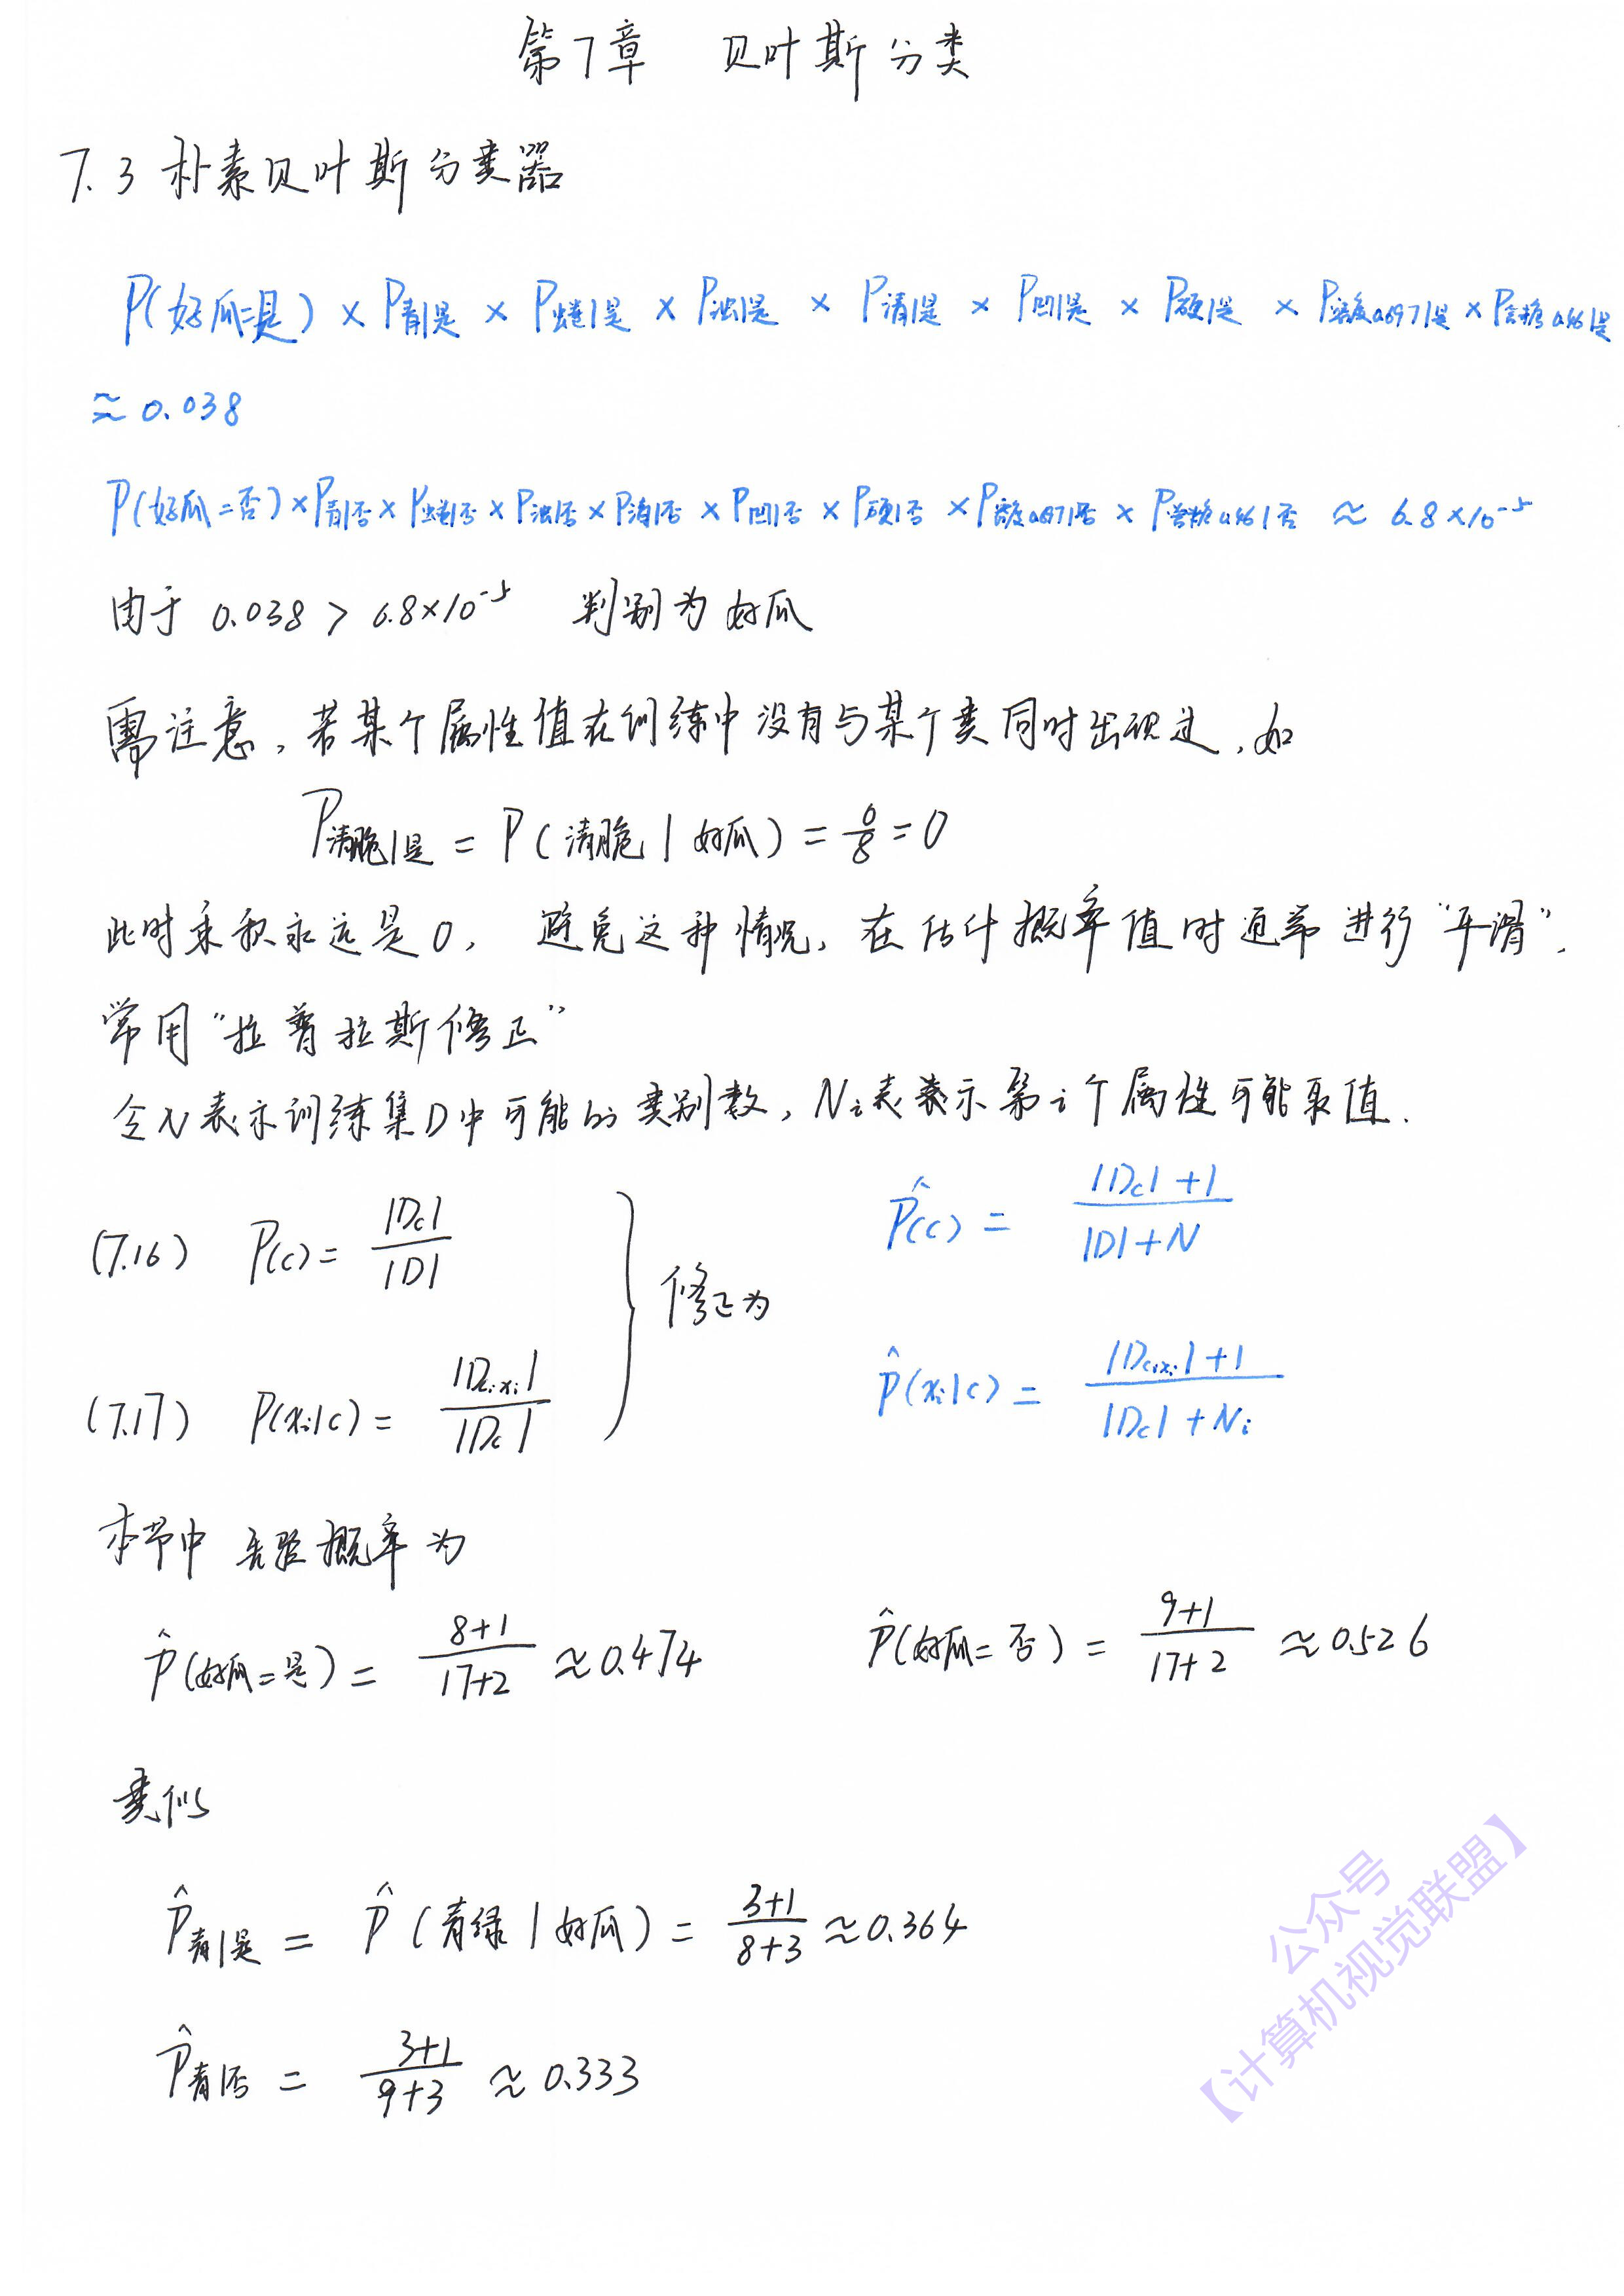 第7章 贝叶斯分类
7.3 朴素贝叶斯分类器
P(好瓜=是) × P青|是 × P蜷|是 × P浊|是 × P清|是 × P凹|是 × P硬|是 × P密度0.697|是 × P含糖0.46|是
≈ 0.038
P(好瓜=否) × P青|否 × P蜷|否 × P浊|否 × P清|否 × P凹|否 × P硬|否 × P密度0.697|否 × P含糖0.46|否 ≈ 6.8×10⁻⁵
由于 0.038 > 6.8×10⁻⁵ 判别为好瓜
需注意,若某个属性值在训练中没有与某个类同时出现过,如
P清脆|是 = P(清脆|好瓜) = 0/8 = 0
此时乘积永远是0, 避免这种情况,在估计概率值时通常进行“平滑”,
常用“拉普拉斯修正”
令N表示训练集D中可能的类别数,Nᵢ表示第i个属性可能取值.
(7.16) P(c) = |Dc| / |D|
修正为
P̂(c) = |Dc|+1 / |D|+N
(7.17) P(xᵢ|c) = |Dc,xᵢ| / |Dc|
P̂(xᵢ|c) = |Dc,xᵢ|+1 / |Dc|+Nᵢ
本节中 先验概率为
P̂(好瓜=是) = 8+1 / 17+2 ≈ 0.474 P̂(好瓜=否) = 9+1 / 17+2 ≈ 0.526
类似
P̂青|是 = P̂(青绿|好瓜) = 3+1 / 8+3 ≈ 0.364
P̂青|否 = 3+1 / 9+3 ≈ 0.333
公众号
【计算机视觉联盟】